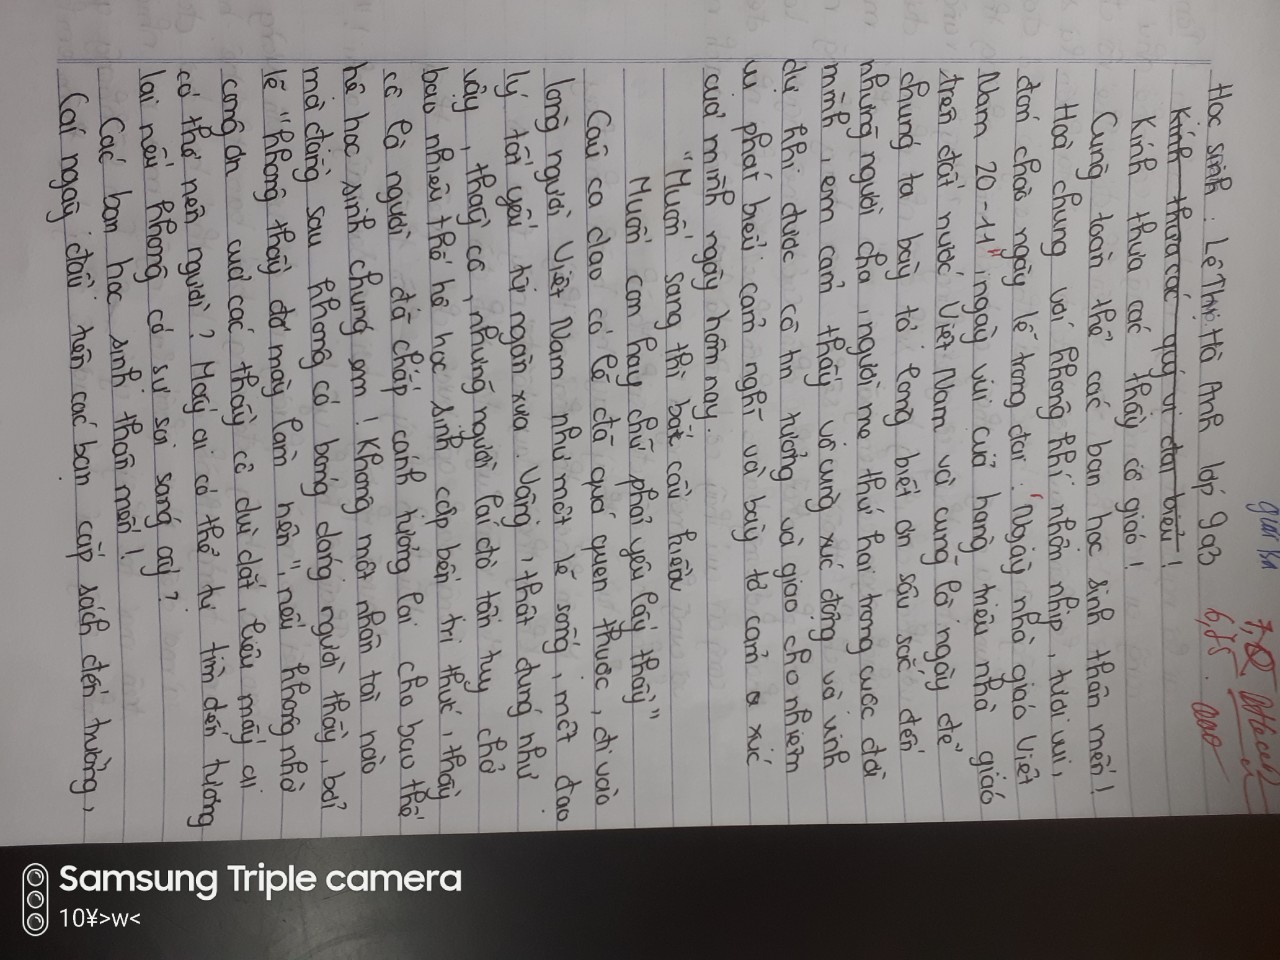 Học sinh : Lê Thị Hà Anh lớp 9a3
Kính thưa các quý vị đại biểu!
Kính thưa các thầy cô giáo!
Cùng toàn thể các bạn học sinh thân mến!
Hoà chung với không khí nhộn nhịp, tươi vui,
đón chào ngày lễ trọng đại: "Ngày nhà giáo Việt
Nam 20-11", ngày vui của hàng triệu nhà giáo
trên đất nước Việt Nam và cũng là ngày để
chúng ta bày tỏ lòng biết ơn sâu sắc đến
những người cha, người mẹ thứ hai trong cuộc đời
mình, em cảm thấy vô cùng xúc động và vinh
dự khi được cô tin tưởng và giao cho nhiệm
vụ phát biểu cảm nghĩ và bày tỏ cảm xúc
của mình ngày hôm nay.
"Muốn sang thì bắc cầu kiều
Muốn con hay chữ phải yêu lấy thầy"
Câu ca dao có lẽ đã quá quen thuộc, đi vào
lòng người Việt Nam như một lẽ sống, một đạo
lý tất yếu từ ngàn xưa. Vâng, thật đúng như
vậy, thầy cô, những người lái đò tận tuỵ chở
bao nhiêu thế hệ học sinh cập bến tri thức, thầy
cô là người đã chắp cánh tương lai cho bao thế
hệ học sinh chúng em! Không một nhân tài nào
mà đằng sau không có bóng dáng người thầy, bởi
lẽ "không thầy đố mày làm nên", nếu không nhờ
công ơn của các thầy cô dìu dắt, liệu mấy ai
có thể nên người? Mấy ai có thể tự tìm đến tương
lai nếu không có sự soi sáng ấy?
Các bạn học sinh thân mến!
Cái ngày đầu tiên các bạn cắp sách đến trường,
7,0
6,75
Samsung Triple camera
10¥>w<